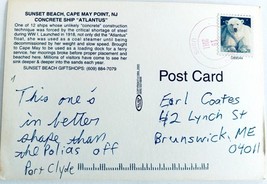 SUNSET BEACH, CAPE MAY POINT, NJ
CONCRETE SHIP "ATLANTUS"
One of 12 ships whose unlikely "concrete" construction
technique was forced by the critical shortage of steel
during WW I. Launched in 1918, not only did the "Atlantus"
float, she was used as a coal steamer until being
decommissioned. Her weight and slow speed. Bought
to Cape May to be used as a loading dock for a ferry
service, her moorings broke before proper placement and
beached here. Millions of visitors have come to see her
sink deeper & deeper into the sands each year.
SUNSET BEACH GIFTSHOPS: (609) 884-7079
Post Card
This one's
in better
shape than
the Polias off
Port Clyde
Earl Coates
42 Lynch St
Brunswick, ME
04011